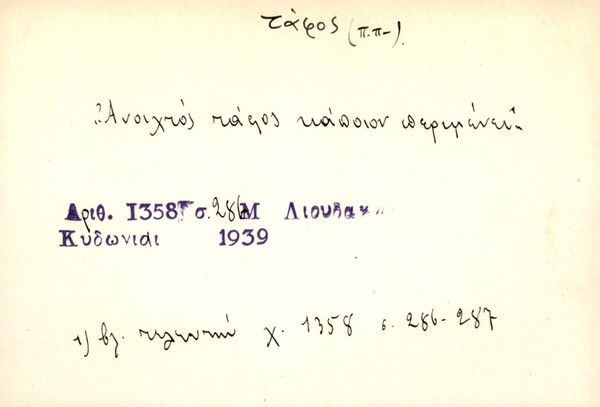 τάφος (π.π-).
"Ἀνοιχτός τάφος κάποιον περιμένει"
Αριθ. 1358 σ. 286 Μ Λιουδακ
Κυδωνιαι 1939
1) βλ. τελευτή χ. 1358 σ. 286-287